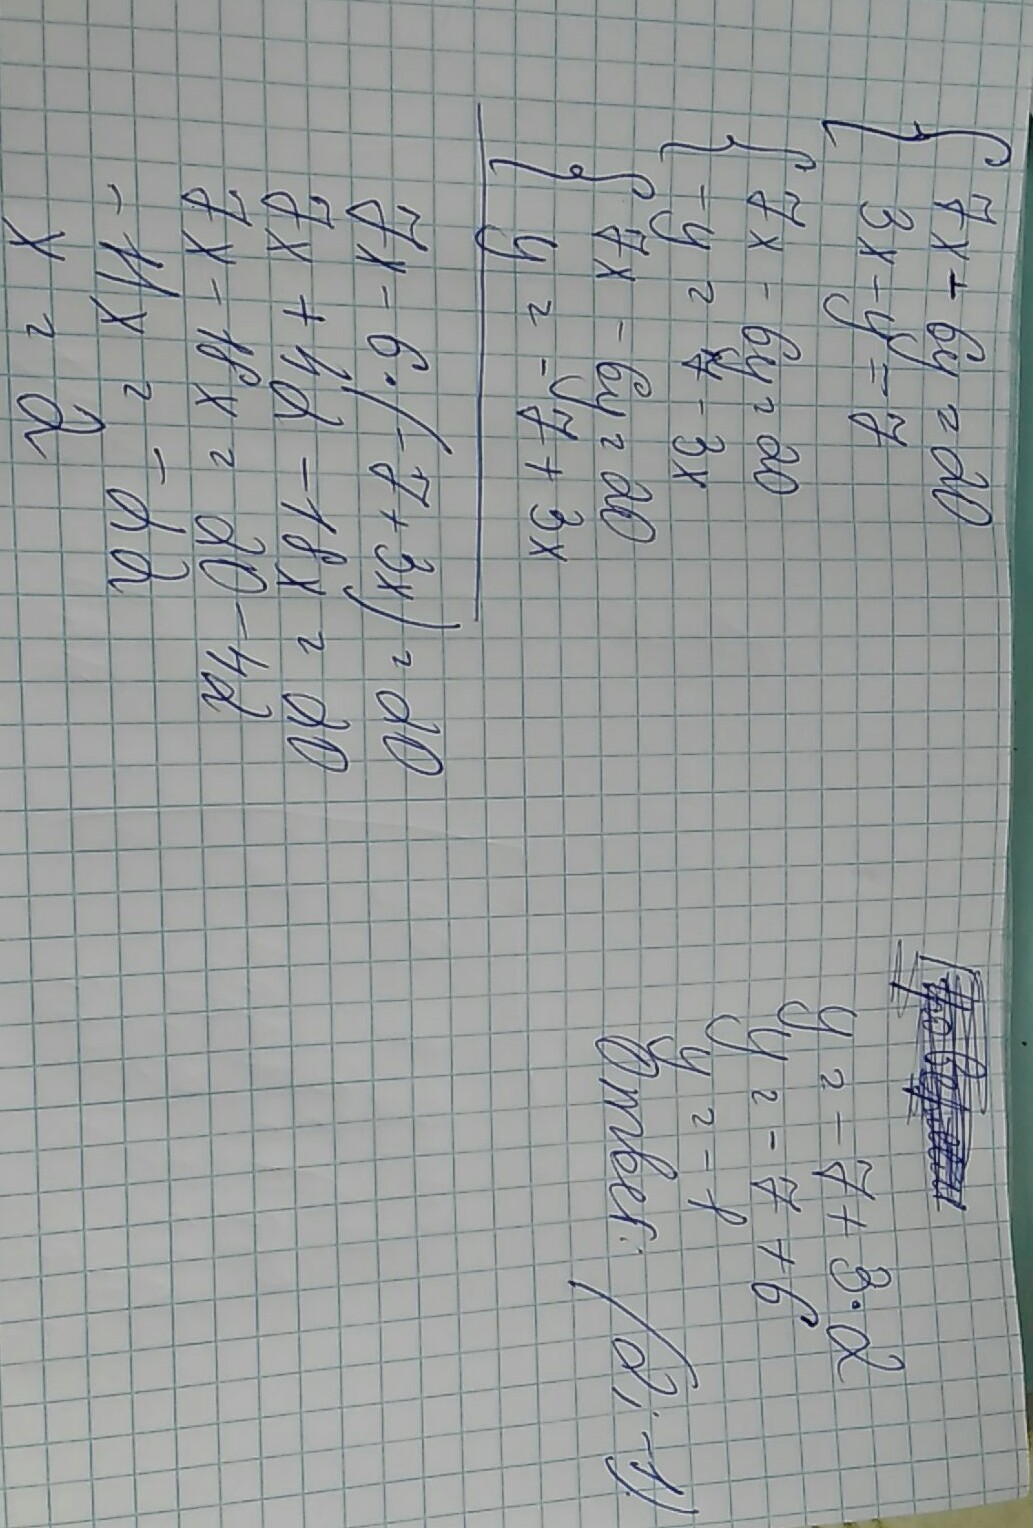 7x + 6y = 20
3x - y = 7
7x - 6y = 20
-y = 7 - 3x
7x - 6y = 20
y = -7 + 3x
7x - 6·(-7 + 3x) = 20
7x + 42 - 18x = 20
7x - 18x = 20 - 42
-11x = -22
x = 2
y = -7 + 3·2
y = -7 + 6
y = -1
Ответ: (2; -1)